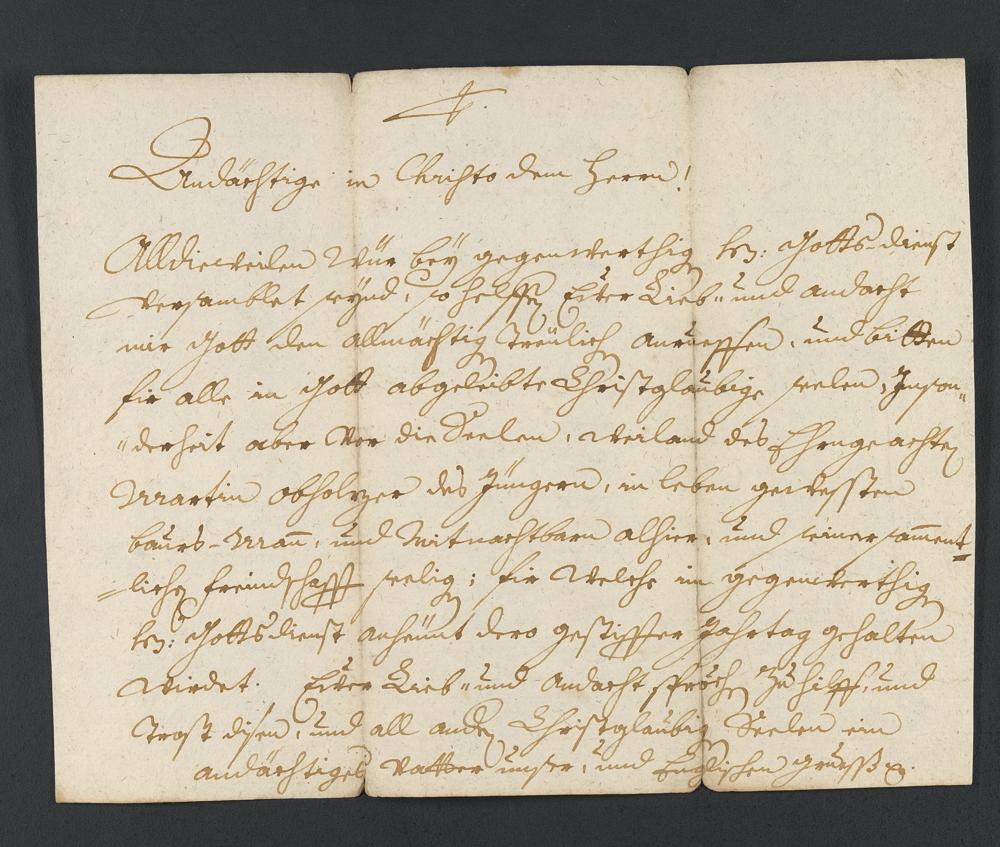 Andächtige in Christo dem Herrn!
Alldieweilen Wür beÿ gegenwerthig hey: Gotts-dienst
versamblet seynd, so helffen Eüer Lieb- und andacht
mir Gott den allmächtig treülich anrueffen, und bitten
fir alle in Gott abgeleibte Christglaubige seelen, Inson-
derheit aber Vor die Seelen, weiland des Ehrngeachten
Martin obholzer des Jüngern, in leben gewessten
baurs-Mann, und Mitnachtbarn alhier, und seiner sament-
lichen freindschafft seelig; fir Welche in gegenwerthig
hey: Gottsdienst anheünt dero gestiffter Jahrtag gehalten
wirdet. Eüer Lieb- und Andacht spröchen Zu hilff, und
Trost disen, und all andern Christglaubig Seelen ein
andächtiges Vatter unser, und Englischen gruess